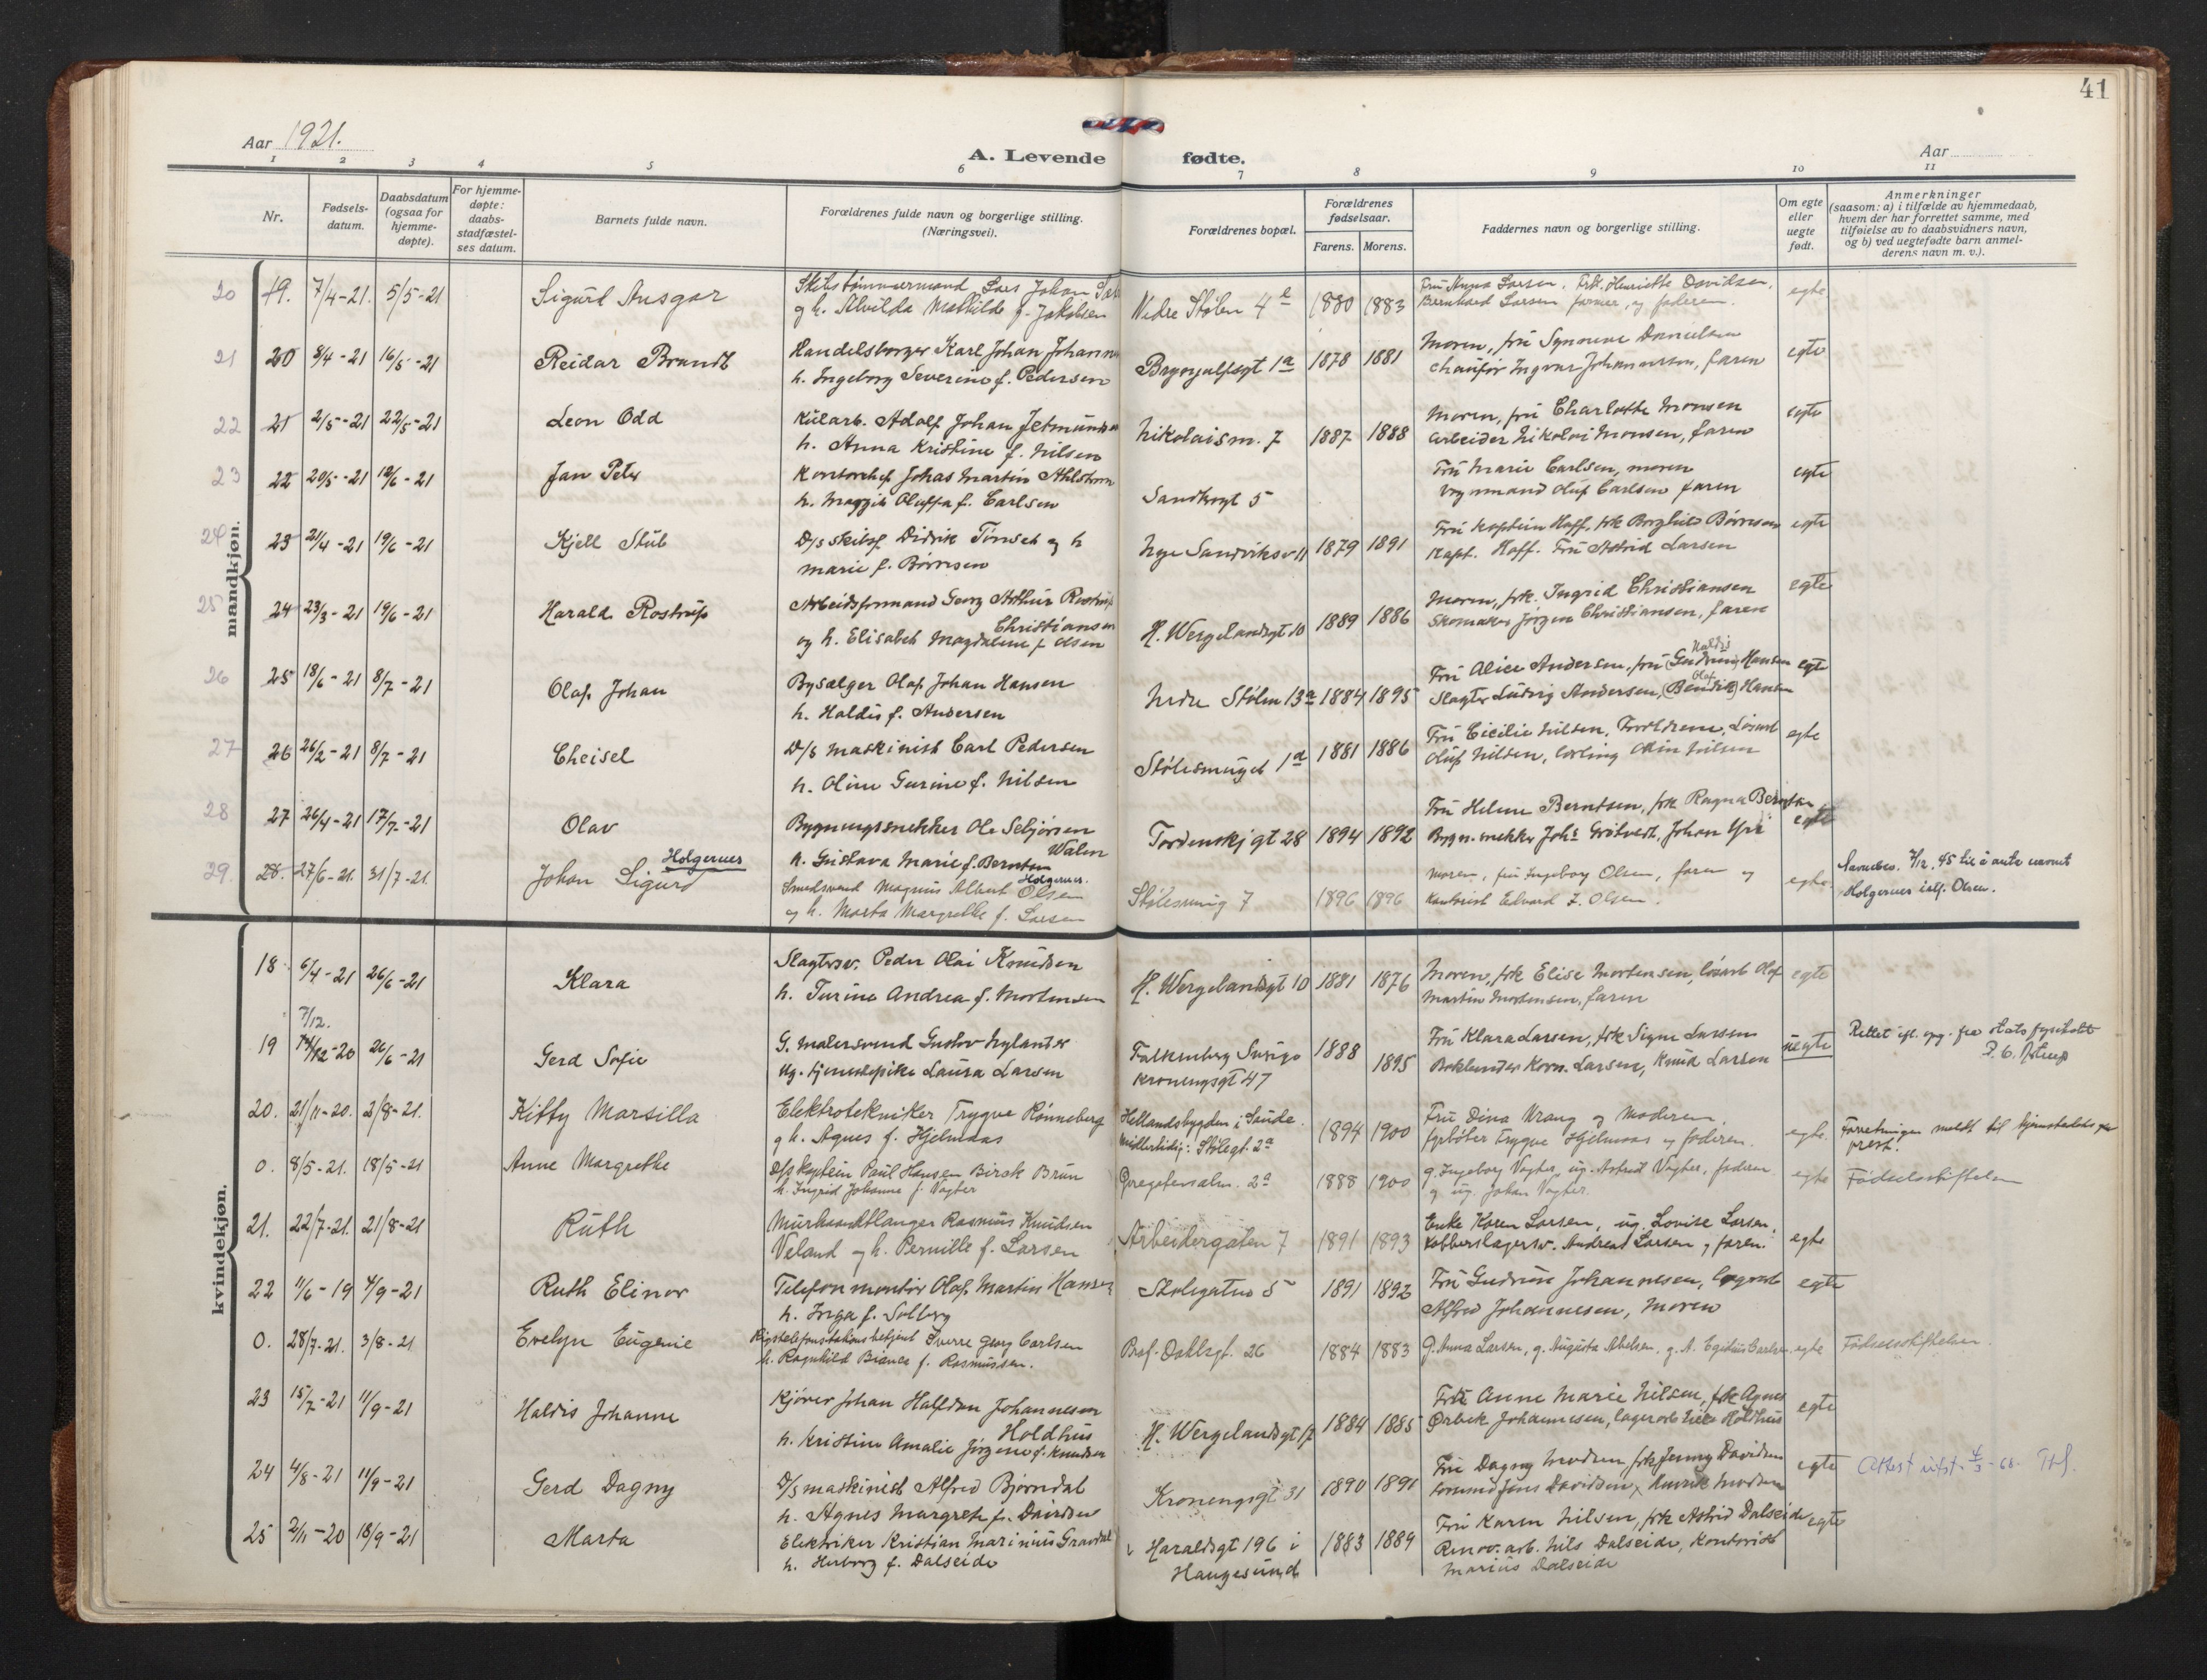 41
Aar 1921.
A. Levende fødte.
Aar
1 2 3 4 5 6 7 8 9 10 11
Nr.
Fødsels-
datum.
Daabsdatum
(ogsaa for
hjemme-
døpte).
For hjemme-
døpte:
daabs-
stadfæstel-
ses datum.
Barnets fulde navn.
Forældrenes fulde navn og borgerlige stilling.
(Næringsvei).
Forældrenes bopæl.
Forældrenes
fødselsaar.
Farens. Morens.
Faddernes navn og borgerlige stilling.
Om egte
eller
uegte
født.
Anmerkninger
(saasom: a) i tilfælde av hjemmedaab,
hvem der har forrettet samme, med
tilføielse av to daabsvidners navn,
og b) ved uegtefødte barn anmel-
derens navn m. v.).
mandkjøn.
20 19. 7/4-21. 5/5-21 Sigurd Ansgar Skibstømmermand Lars Johan Nedre Stølen 4 1880 1883 Fru Anna Larsen, Frk. Henriette Davidsen, egte
og h. Alvilda Mathilde f. Jakobsen Bernhard Larsen og faderen.
21 20 8/4-21 16/5-21 Reidar Brandt Handelsborger Karl Johan Brynjulfsgt 1a 1878 1881 Moren, fru Synneve Danielsen egte
h. Ingeborg Severine f. Pedersen chaufør Ingvar Johannessen, faren
22 21 2/5-21 22/5-21 Leon Odd Kularb. Adolf Johan Nikolaism. 7 1887 1888 Moren, fru Charlotte Monsen egte
h. Anna Kristine f. Nilsen arbeider Nikolai Monsen, faren
23 22 20/5-21 19/6-21 Jan Peter Kontorchef Johas Martin Ahlstrøm Sandbrogt 5 Fru Marie Carlsen, moren egte
h. Maggie Oluffa f. Carlsen Vognmand Oluf Carlsen faren
24 23 21/4-21 19/6-21 Kjell Stub D/s skibsf. Didrik Tønseth og h Nye Sandviksv 11 1879 1891 Fru Kaptein Hoff, frk Borghild Børresen egte
Marie f. Børresen Kapt. Hoff. Fru Astrid Larsen
25 24 23/3-21 19/6-21 Harald Rostrup Arbeidsformand Georg Arthur Rostrup H. Wergelandsgt 10 1889 1886 Moren, frk. Ingrid Christiansen egte
Christiansen
og h. Elisabeth Magdalene f. Olsen Skomaker Jørgen Christiansen, faren
26 25 18/6-21 8/7-21 Olaf Johan Bysælger Olaf Johan Hansen Nedre Stølen 13a 1884 1895 Fru Alice Andersen, fru (Gudrun) Haldis Hansen egte
h. Haldis f. Andersen Slagter Ludvig Andersen, (Bendik) Olaf Hansen
27 26 26/2-21 8/7-21 Cheisel D/s Maskinist Carl Pedersen Stølesmuget 1a 1881 1886 Fru Cicilie Nilsen, Forældrene, Løsarb egte
h. Oline Gurine f. Nilsen Oluf Nilsen, lærling Odin Nilsen
28 27 26/4-21 17/7-21 Olav Bygningssnekker Ole Sebjørsen Tordenskj gt 28 1894 1892 Fru Helene Berntsen, frk Ragna Berntsen egte
Walen
h. Gustava Marie f. Berntsen Bygn.snekker Johs Grøtvedt, Johan
29. 28. 27/6-21. 31/7-21. Johan Sigurd Holgernes Smedsvend Magnus Albert Olsen Holgernes. Stølesmug 7 1896 1896 Moren, fru Ingeborg Olsen, faren og egte Navnebev. 7/12.45 til å anta navnet
og h. Marta Margrethe f. Larsen kontorist Edvard Z. Olsen. Holgernes istf. Olsen.
kvindekjøn.
18 6/4-21 26/6-21 Klara Slagtersv. Peder Olai Knudsen H. Wergelandsgt 10 1881 1876 Moren, frk Elise Mortensen, løsarb Olaf egte
h. Turine Andrea f. Mortensen Martin Mortensen, faren
7/12.
19 -20 26/6-21 Gerd Sofie G. malersvend Gustav Nylander Falkenberg Sverige 1888 Fru Klara Larsen, frk Signe Larsen uegte Rettet ifl. opg. fra
Ug. tjenestepike Laura Larsen Kronengsgt 47 1895 Bokbinder Korn. Larsen, Knud Larsen
20. 21/11-20. 2/8-21. Kitty Marsilla Elektrotekniker Trygve Rønneberg Hellandsbygden i Saude. 1894 1900 Fru Dina Vrang og Moderen egte. Forretningen meldt til hjemstedets
og h. Agnes f. Hjelmaas midlertidig: Stølegt. 2a fyrbøter Trygve Hjelmaas og faderen. prest.
0. 8/5-21. 18/5-21 Anne Margrethe D/s Kaptein Paul Hansen Birck Brun 2a 1888 1900 g. Ingeborg Vogter, ug. Astrid Vogter, faderen egte Fødselsstiftelsen
h. Ingrid Johanne f. Vogter og ug. Johan Vogter.
21. 22/7-21. 21/8-21 Ruth Murhaandtlanger Rasmus Knudsen Arbeidergaten 7 1891 1893 Enke Karen Larsen, ug. Lovise Larsen, egte
Veland og h. Pernille f. Larsen Kobberslagersv. Andreas Larsen og faren.
22 11/6-19 4/9-21 Ruth Elinor Telefonmontør Olaf Martin Hansen Skolegaten 5 1891 1892 Fru Gudrun Johannesen, egte
h. Inga f. Solberg Alfred Johannesen, Moren
0. 28/7-21. 3/8-21 Evelyn Eugenie Rigstelefonstationsbetjent Sverre Georg Carlsen Prof. Dahlsgt. 26 1884 1883 g. Anna Larsen, g. Augusta Abelsen, g. A. Egidius Carlsen. egte Fødselsstiftelsen.
h. Ragnhild Bianca f. Rasmussen.
23 15/7-21 11/9-21 Haldis Johanne Kjører Johan Halfdan Johannesen H. Wergelandsgt 17 1884 1885 Fru Anne Marie Nilsen, frk Agnes egte
Holdhus
h. Kristine Amalie Jørgine f. Knudsen Ørbek Johannesen, lagerarb Nils Holdhus
24 4/8-21 11/9-21 Gerd Dagny D/s maskinist Alfred Bjørndal Kronengsgt 31 1890 1891 Fru Dagny Madsen frk Jenny Davidsen egte Attest utst. 4/3-68.
h. Agnes Margreth f. Davidsen formand Jens Davidsen, Henrik Madsen
25 2/11-20 18/9-21 Marta Elektriker Kristian Marinius Gravdal Haraldsgt 196 i 1883 1889 Fru Karen Nilsen, frk Astrid Dalseide egte
h. Herborg f. Dalseide Haugesund Renov.arb. Nils Dalseide, Kontorist
Marius Dalseide